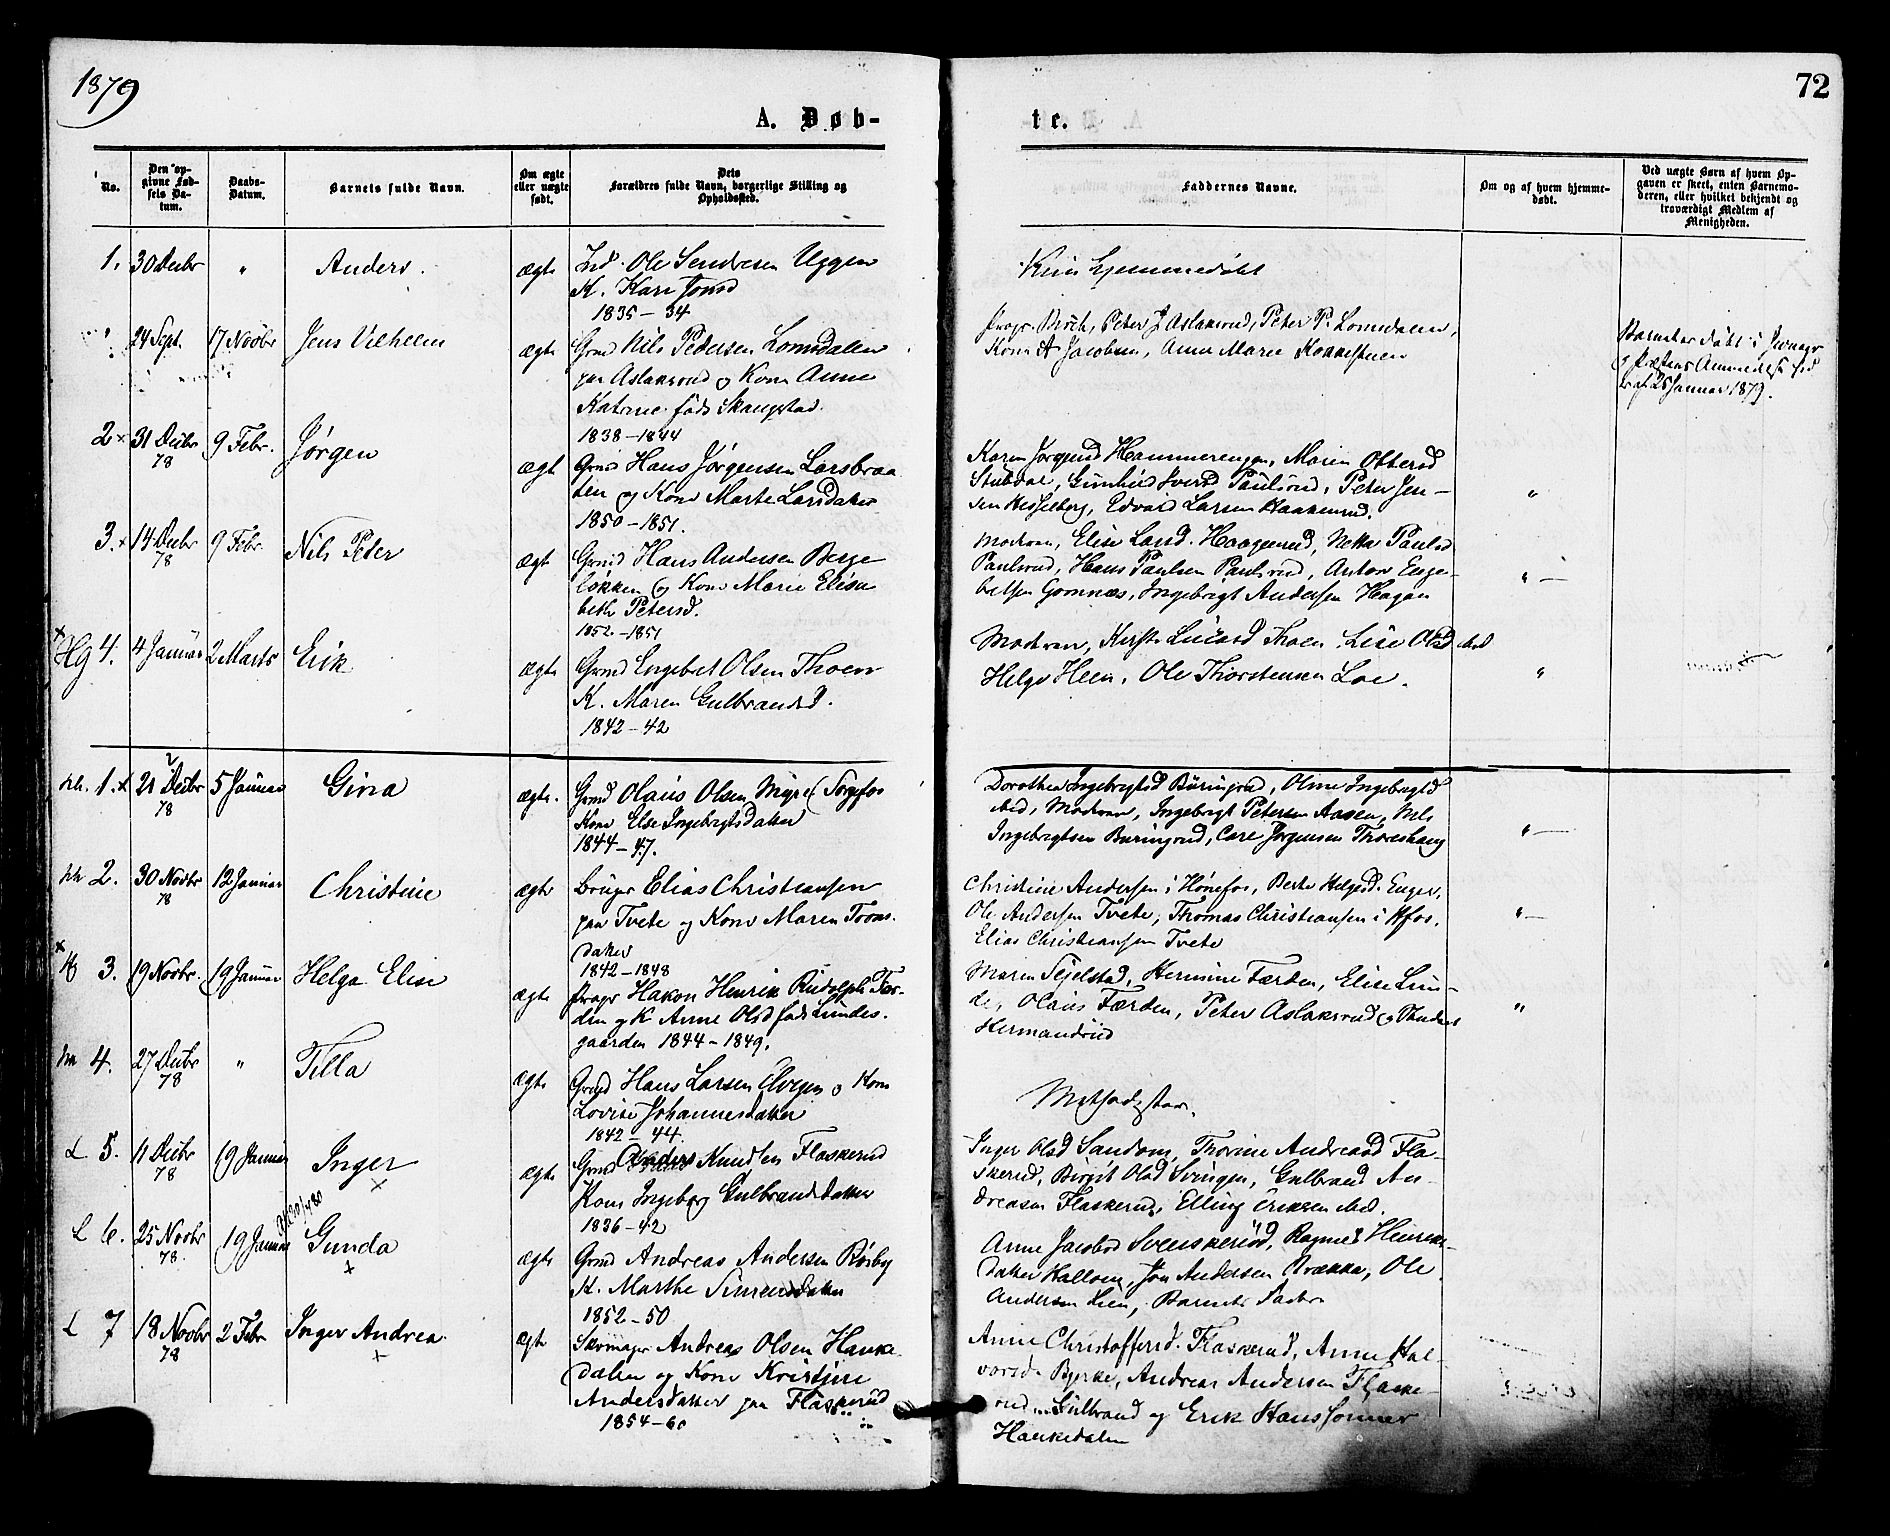 1879
72
A. Døb-
te.
No.
Den opgivne Fødsels Datum.
Daabs-Datum.
Barnets fulde Navn.
Om ægte eller uægte født.
Dets Forældres fulde Navn, borgerlige Stilling og Opholdssted.
Faddernes Navne.
Om og af hvem hjemmedøbt.
Ved uægte Børn af hvem Opgaven er skeet, enten Barnemoderen, eller hvilket bekjendt og troværdigt Medlem af Menigheden.
1. 30 Decbr " Anders. ægte Ole Uggen
K. Kari
1835 – 34
Kun hjemmedøbt
" 24 Sept. 17 Novbr Jens Vilhelm ægte Grmd Nils Pedersen Lomsdalen
paa Aslaksrud og Kone Anne
Katrine født Skaugstad.
1838 – 1844
Birch, Peter J Aslaksrud, Peter P. Lomsdalen,
Kone A Jacobsen, Anne Marie
Barnet er døbt i
25 Januar 1879.
2 x 31 Decbr 78 9 Febr. Jørgen ægte Grmd Hans Jørgensen Larsbraa
ten og Kone Marte Larsdatter
1850 – 1851.
Karen Jørgensd Hammerengen, Maren Ottersd
Stubdal, Gunhild Iversd Paulsrud, Peter Jen-
sen Hesselberg, Edvard Larsen Haakenrud.
"
3. x 14 Decbr 78 9 Febr. Nils Peter ægte Grmd Hans Andersen Berge
løkken og Kone Marie Elisa
beth Petersd.
1852 – 1851
Modren, Elise Larsd. Netta Paulsd
Paulsrud, Hans Paulsen Paulsrud, Anton Enge-
bretsen Gomnæs, Ingebrigt Andersen Hagan
" —
x Hg 4. 4 Januar 2 Marts Erik ægte Grmd Engebret Olsen Thoen
K. Maren Gulbrandsd.
1842 – 42
Modren, Thoen, Lise Olsd ibid
Helge Heen, Ole Thorstensen Loe.
"
1. x 21 Decbr 78 5 Januar Gina ægte. Grmd Olaus Olsen Myre
Kone Else Ingebrigtsdatter
1844 – 47.
Dorothea Ingebrigtsd Buringrud, Oline Ingebrigtsd
ibid, Modren, Ingebrigt Petersen Aasen, Nels
Ingebrigtsen Buringrud, Carl Jørgensen
" —
2. 30 Novbr 78 12 Januar Christine ægte Bruger Elias Christiansen
paa Tvete og Kone Maren
datter
1842 – 1848
Christine Andersen i Hønefos, Berte Helgesd. Enger,
Ole Andersen Tvete, Thomas Christiansen i Hfos.
Elias Christiansen Tvete
" —
x 3. 19 Novbr. 19 Januar Helga Elise ægte Hakon Henrik Rudolph Fær-
den og K Anne Olsd født Lindes-
gaarden 1844 – 1849.
Maren Tejelstad, Hermine Færden, Elise Lun-
de, Olaus Færden, Peter Aslaksrud og
Hermandrud
"
4. 27 Decbr 78 " Tilla ægte Grmd Hans Larsen Elvegen og Kone
Lovise Johannesdatter
1842 – 44.
Methodister.
L 5. 11 Decbr 78 19 Januar Inger x ægte Grmd Anders Knudsen Flaskerud
Kone Ingeborg Gulbrandsdatter
1836 – 42
Inger Olsd Sandom, Thorine Andreasd Fla-
skerud, Birgit Olsd Svingen, Gulbrand An-
dreasen Flaskerud, Elling Eriksen ibid.
L 6. 25 Novbr 78 19 Januar Gunda x ægte Grmd Andreas Andersen Rørby
K. Marthe Simensdatter
1852 – 50
Anne Jacobsd Svenskerud, Ragnild Henriks-
datter Hallom, Jon Andersen Brække, Ole
Andersen Lien, Barnets Fader
L 7 18 Novbr 78 2 Febr Inger Andrea x ægte Andreas Olsen Hauke
dalen og Kone Kristine
Andersdatter paa Flaskerud
1854 – 60
Anne Christoffersd. Flaskerud, Anne Hal-
vorsd. Bjerke, Andreas Andersen Flaske-
rud, Gulbrand og Erik Hanssønner
Haukedalen